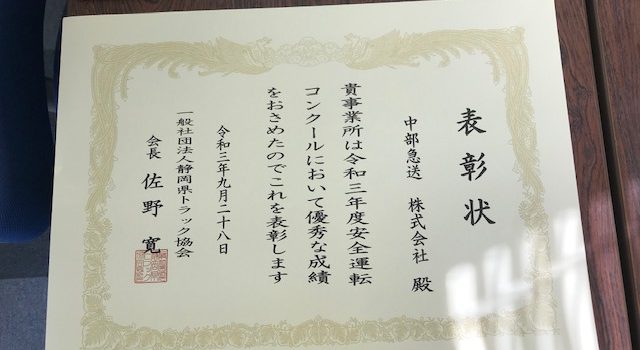 表彰状
中部急送 株式会社 殿
貴事業所は令和三年度安全運転
コンクールにおいて優秀な成績
をおさめたのでこれを表彰します
令和三年九月二十八日
一般社団法人静岡県トラック協会
会長 佐野 寛